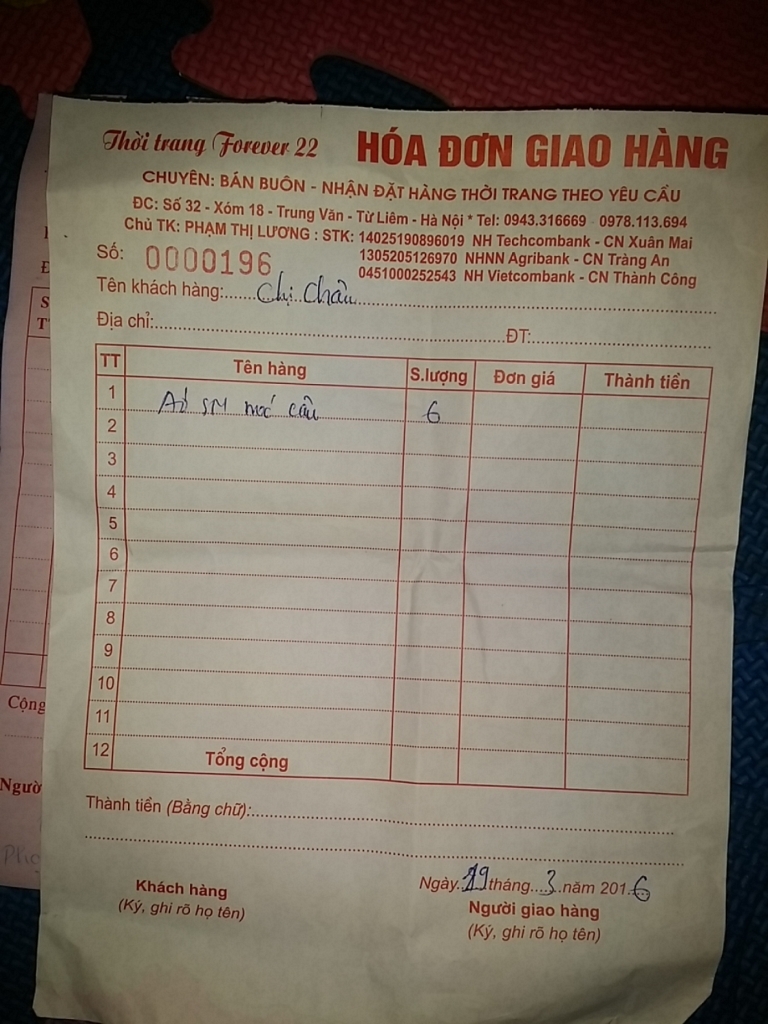 Thời trang Forever 22 HÓA ĐƠN GIAO HÀNG
CHUYÊN: BÁN BUÔN - NHẬN ĐẶT HÀNG THỜI TRANG THEO YÊU CẦU
ĐC: Số 32 - Xóm 18 - Trung Văn - Từ Liêm - Hà Nội * Tel: 0943.316669 0978.113.694
Chủ TK: PHẠM THỊ LƯƠNG : STK: 14025190896019 NH Techcombank - CN Xuân Mai
1305205126970 NHNN Agribank - CN Tràng An
0451000252543 NH Vietcombank - CN Thành Công
Số: 0000196
Tên khách hàng: Chị Châu
Địa chỉ: ĐT:
TT Tên hàng S.lượng Đơn giá Thành tiền
1 Áo SM 6
2
3
4
5
6
7
8
9
10
11
12 Tổng cộng
Thành tiền (Bằng chữ):
Ngày 19 tháng 3 năm 2016
Khách hàng Người giao hàng
(Ký, ghi rõ họ tên) (Ký, ghi rõ họ tên)
Cộng
Ngườ